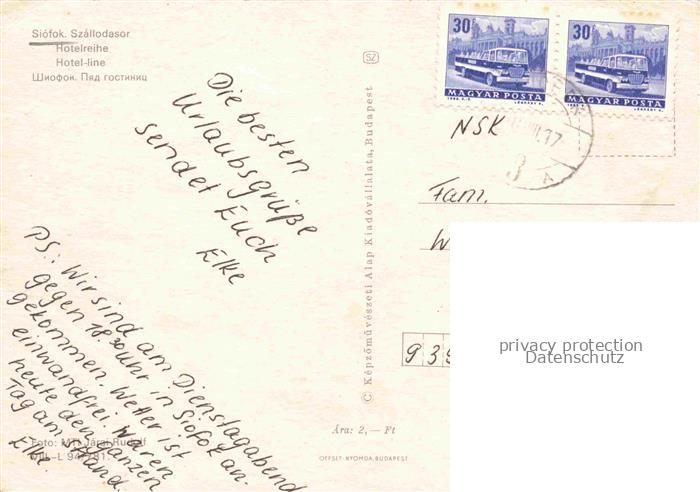 Siófok. Szállodasor
Hotelreihe
Hotel-line
Шиофок. Пяд гостиниц
Die besten
Urlaubsgrüße
sendet Euch
Elke
PS: Wir sind am Dienstagabend
gegen 18³⁰ Uhr in Siofok an-
gekommen. Wetter ist
einwandfrei. Waren
heute den ganzen
Tag am Strand.
Elke.
Foto: MTI Járai Rudolf
VIII-L 947/81.
SZ
© Képzőművészeti Alap Kiadóvállalata, Budapest
Ára: 2,— Ft
OFFSET-NYOMDA, BUDAPEST
30 f
MAGYAR POSTA
30
MAGYAR POSTA
NSK
Fam.
W
939
privacy protection
Datenschutz